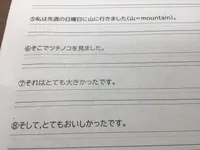 ⑤私は先週の日曜日に山に行きました(山=mountain)。
⑥そこでツチノコを見ました。
⑦それはとても大きかったです。
⑧そして,とてもおいしかったです。